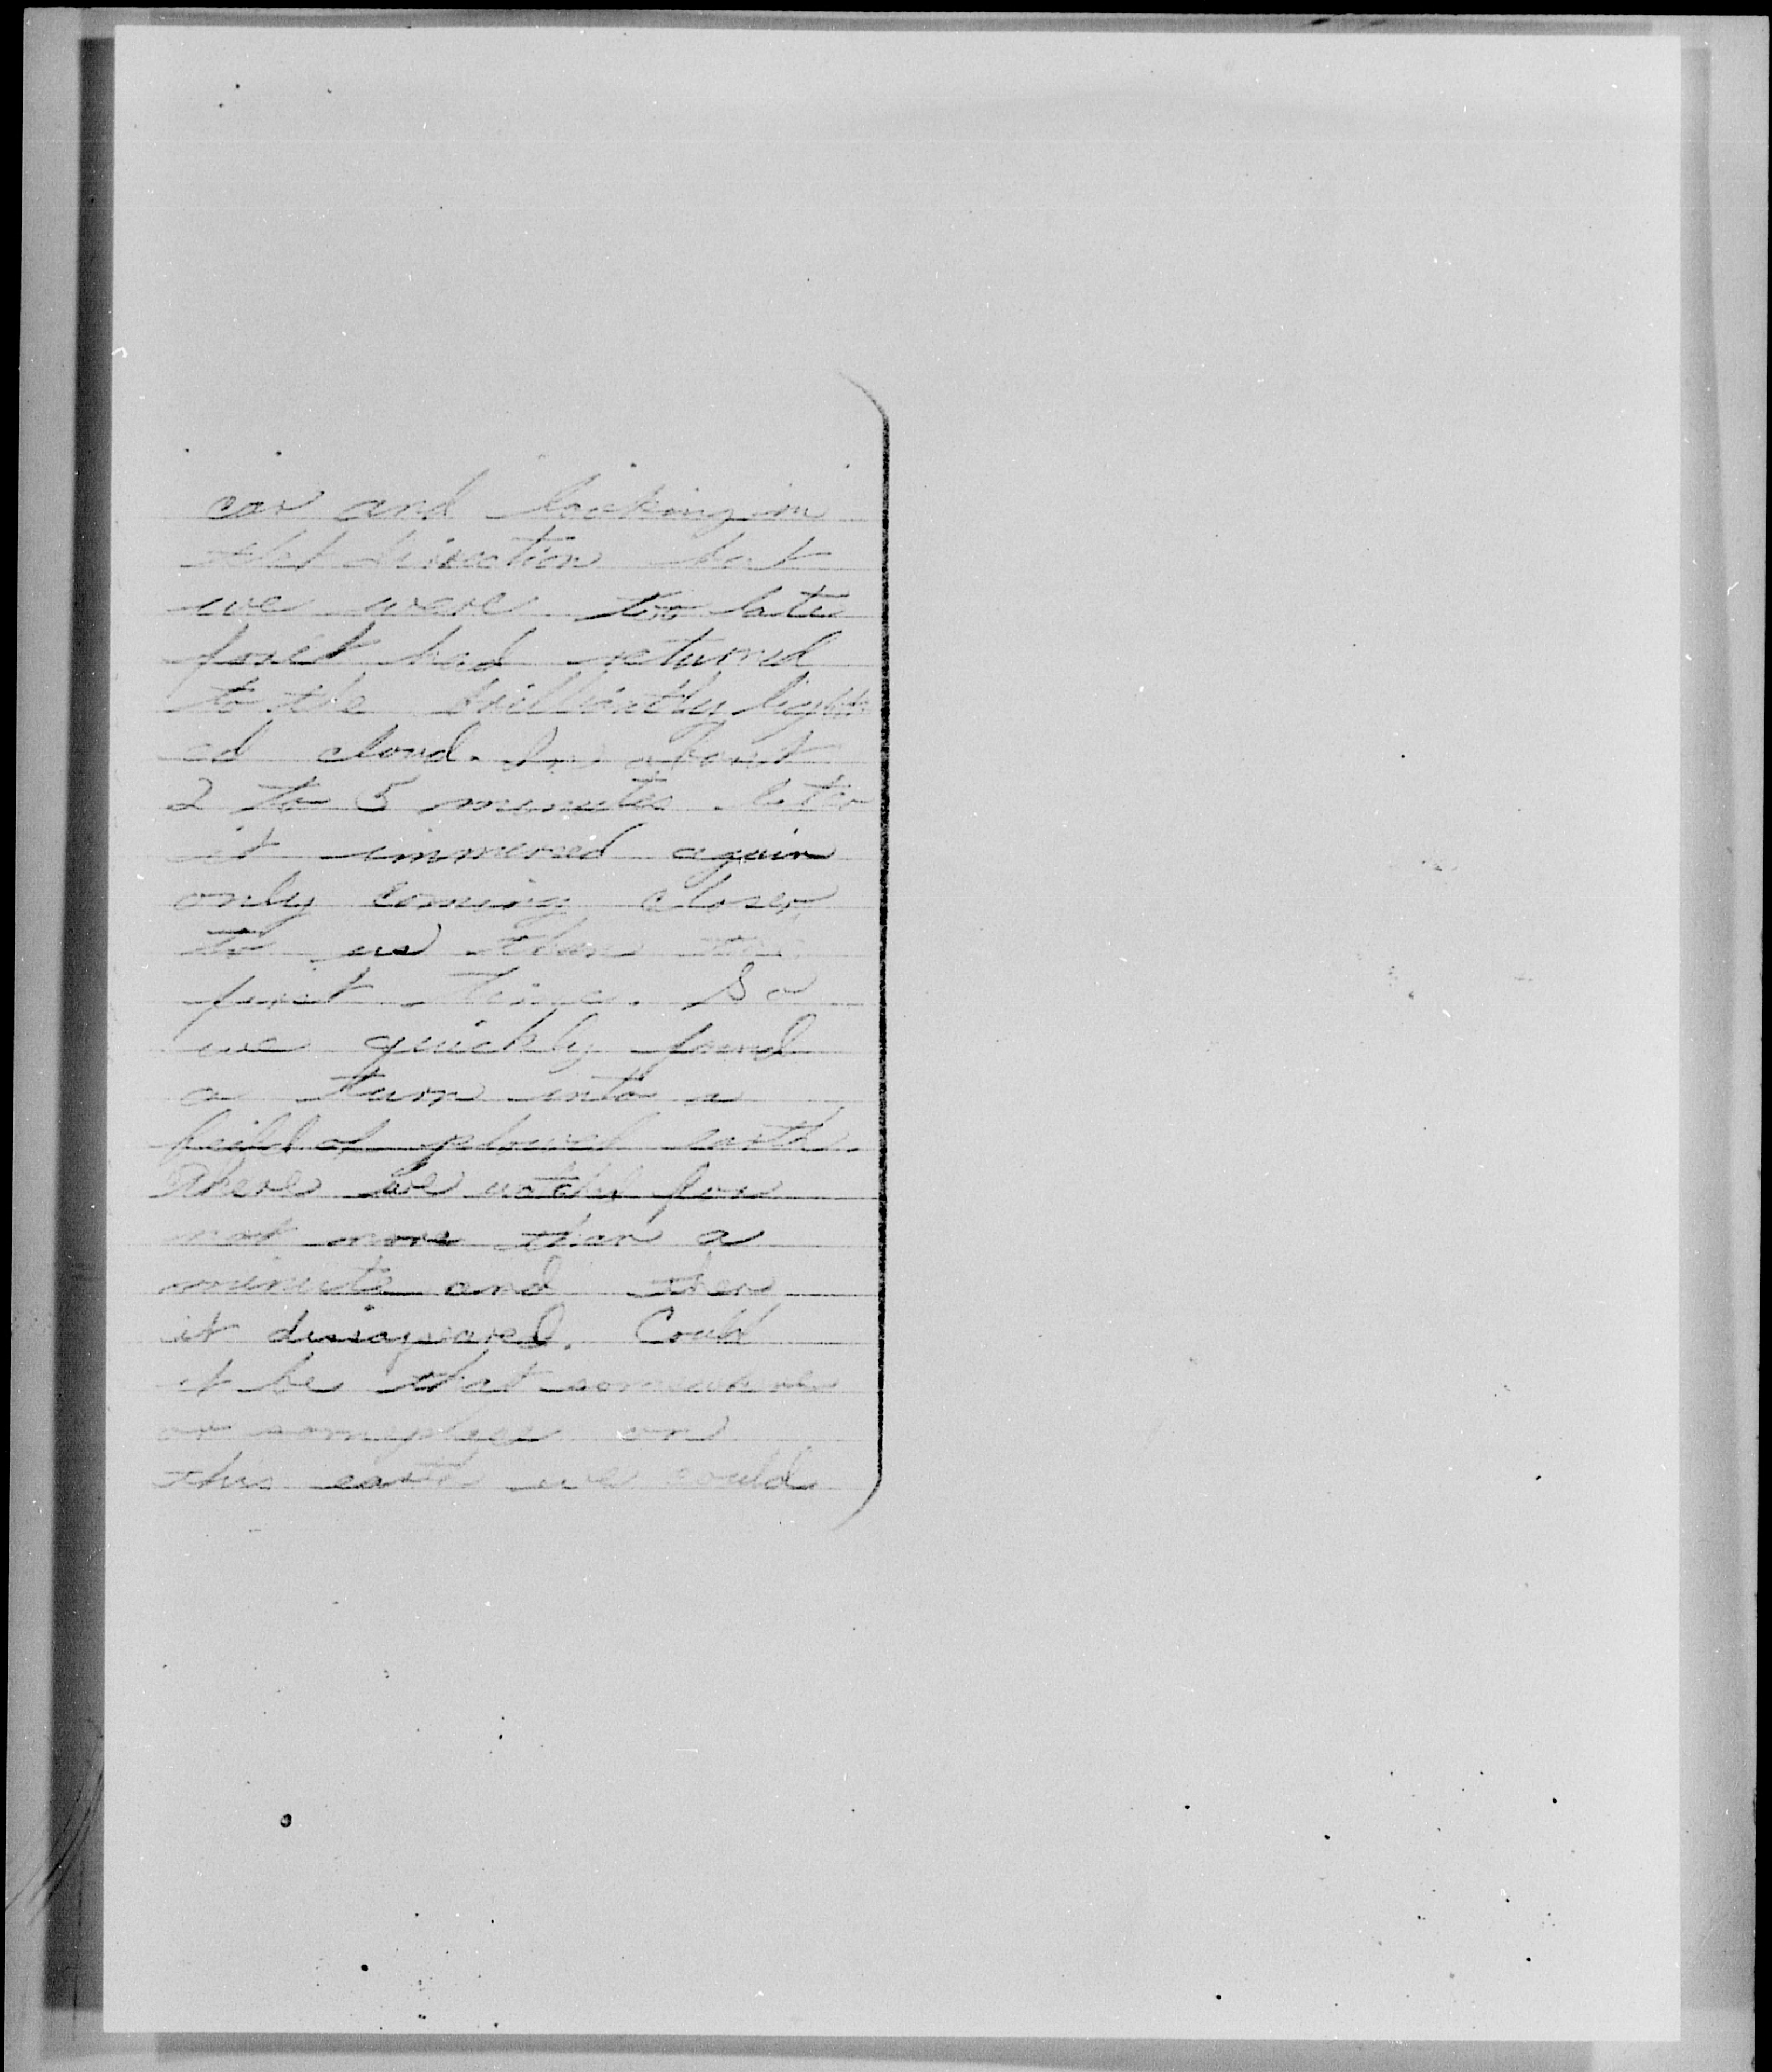 car and looking in
that direction but
we were too late
for it had returned
to the brilliantly light
ed cloud. In about
2 to 5 minutes later
it immersed again
only coming closer
to us than the
first time. So
we quickly found
a turn into a
feild of plowed earth.
There we watched for
not more than a
minute and then
it dissapeared. Could
it be that somewhere
or someplace on
this earth we could